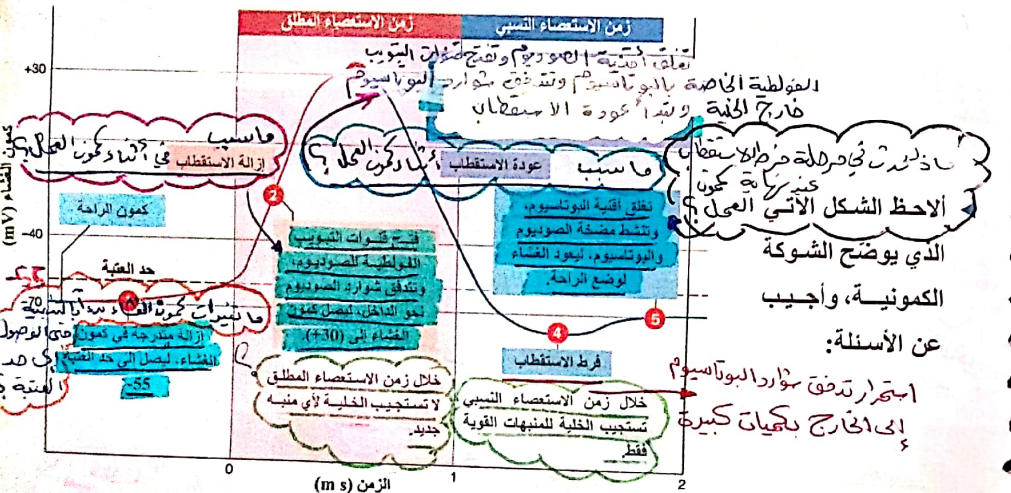 زمن الاستعصاء المطلق
زمن الاستعصاء النسبي
تغلق أقنية الصوديوم وتفتح قنوات التبويب
الفولطية الخاصة بالبوتاسيوم وتتدفق شوارد البوتاسيوم
خارج الخلية وتبدأ عودة الاستقطاب
+30
-40
-70
كمون الغشاء (mV)
ما سبب
إزالة الاستقطاب في أثناء كمون العمل؟
ما سبب عودة الاستقطاب أثناء كمون العمل؟
ماذا يحدث في مرحلة فرط الاستقطاب
عند نهاية كمون
العمل؟
ألاحظ الشكل الآتي
الذي يوضح الشوكة
الكمونية، وأجيب
عن الأسئلة:
كمون الراحة
2
حد العتبة
فتح قنوات التبويب
الفولطية للصوديوم،
وتتدفق شوارد الصوديوم
نحو الداخل، ليصل كمون
الغشاء إلى (30+).
تغلق أقنية البوتاسيوم،
وتنشط مضخة الصوديوم
والبوتاسيوم، ليعود الغشاء
لوضع الراحة.
ما تغيرات كمون الغشاء بدءاً
حتى الوصول
إلى حد
العتبة؟
إزالة متدرجة في كمون
الغشاء، ليصل إلى حد العتبة
-55
4
5
فرط الاستقطاب
خلال زمن الاستعصاء المطلق
لا تستجيب الخلية لأي منبه
جديد.
خلال زمن الاستعصاء النسبي
تستجيب الخلية للمنبهات القوية
فقط.
استمرار تدفق شوارد البوتاسيوم
إلى الخارج بكميات كبيرة
0
1
2
الزمن (m s)